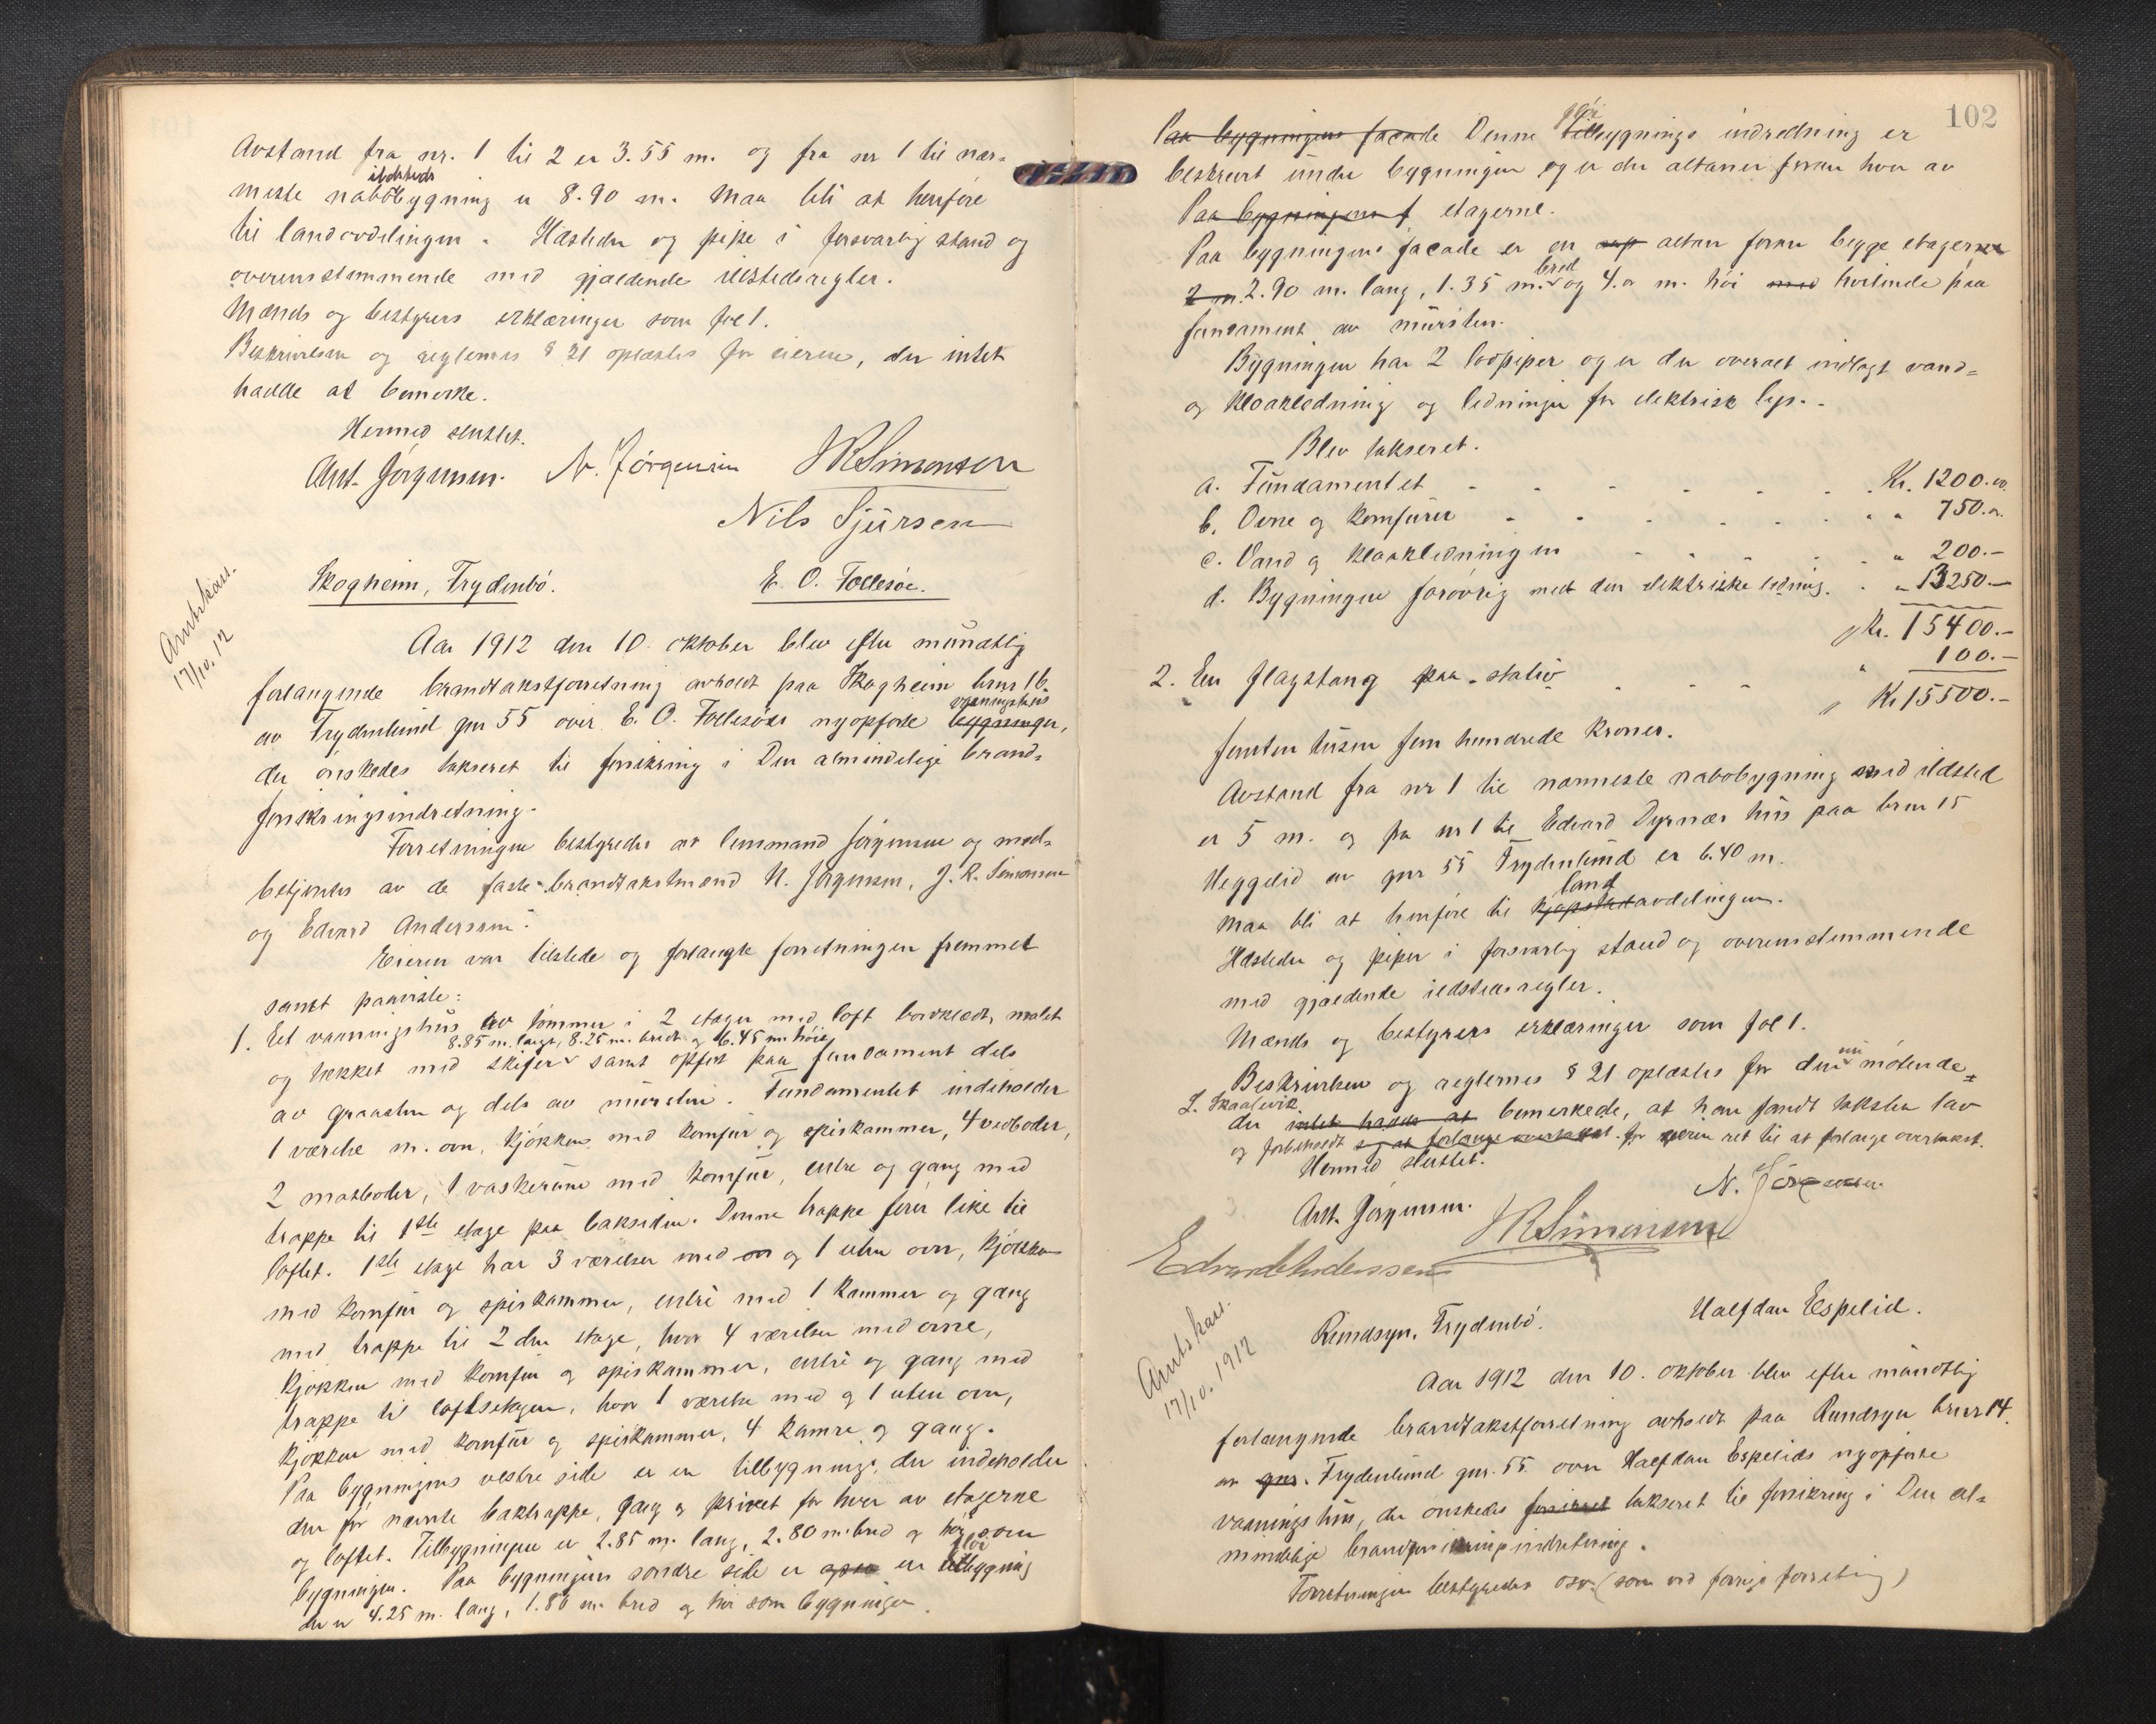 Avstand fra nr. 1 til 2 er 3.55 m. og fra nr 1 til nær-
ildsteds
meste nabobygning er 8.90 m. Maa bli at henføre
til landavdelingen. Ildsteder og pipe i forsvarlig stand og
overensstemmende med gjældende ildstedsregler.
Mænds og bestyrers erklæringer som fol 1.
Beskrivelsen og reglernes § 21 oplæstes for eieren, der intet
hadde at bemerke.
Hermed sluttet.
Ant. Jörgensen. N. Jörgensen JRSimonsen
Nils Sjursen
Amtskass.
17/10. 12
Skogheim, Frydenbö. E. O. Follesöe.
Aar 1912 den 10. oktober blev efter mundtlig
forlangende brandtakstforretning avholdt paa Skogheim brnr 16
vaaningshus
av Frydenlund gnr 55 over E. O. Follesöes nyopførte bygninger,
der ønskedes takseret til forsikring i Den almindelige brand-
forsikringsindretning.
Forretningen bestyredes av lensmand Jörgensen og med-
betjentes av de faste brandtakstmænd N. Jörgensen, J. R. Simonsen
og Edvard Anderssen.
Eieren var tilstede og forlangte forretningen fremmet
samt paaviste:
1. Et vaaningshus av tømmer i 2 etager med loft bordklædt, malet
8.85 m. langt, 8.25 m. bredt og 6.45 m høit
og tækket med skifer samt opført paa fundament dels
av graasten og dels av mursten. Fundamentet indeholder
1 værelse m. ovn, kjøkken med komfur og spiskammer, 4 vedboder,
2 matboder, 1 vaskerum med komfur, entre og gang med
trappe til 1ste etage paa baksiden. Denne trappe fører like til
loftet. 1ste etage har 3 værelser med ovn og 1 uten ovn, kjøkken
med komfur og spiskammer, entré med 1 kammer og gang
med trappe til 2den etage, hvor 4 værelser med ovne,
kjøkken med komfur og spiskammer, entré og gang med
trappe til loftsetagen, hvor 1 værelse med og 1 uten ovn,
kjøkken med komfur og spiskammer, 4 kamre og gang.
Paa bygningens vestre side er en tilbygning, der indeholder
den før nævnte baktrappe, gang og privet for hver av etagerne
og loftet. Tilbygningen er 2.85 m. lang, 2.80 m. bred og høi som
fløi
bygningen. Paa bygningens søndre side er en tilbygning
der er 4.25 m. lang, 1.80 m. bred og høi som bygningen.
102
fløi
Paa bygningens facade Denne tilbygnings indredning er
beskrevet under bygningen og er der altaner foran hver av
Paa bygningens f etagerne.
Paa bygningens facade er en altan foran begge etagerne
bred
2 m. 2.90 m. lang, 1.35 m. og 4.0 m. høi med hvilende paa
fundament av mursten.
Bygningen har 2 lodpiper og er der overalt indlagt vand-
og kloakledning og ledninger for elektrisk lys.
Blev takseret.
a. Fundamentet Kr. 1200.00.
b. Ovne og komfurer " 750.0.
c. Vand og kloakledningen " 200.-
d. Bygningen forøvrig med den elektriske ledning. " 13250.-
Kr. 15400.-
2. En flagstang paa stativ " 100.-
Kr 15500.-
femten tusen fem hundrede kroner.
Avstand fra nr 1 til nærmeste nabobygning med ildsted
er 5 m. og fra nr 1 til Edvard Dyrnæs hus paa brnr 15
Heggelid av gnr 55 Frydenlund er 6.40 m.
land
Maa bli at henføre til kjøpstadavdelingen.
Ildsteder og piper i forsvarlig stand og overensstemmende
med gjældende ildstedsregler.
Mænds og bestyrers erklæringer som fol 1.
nu
Beskrivelsen og reglernes § 21 oplæstes for den møtende
L. Skaalevik
der intet hadde at bemerkede, at han fandt taksten lav
og forbeholdt sig at forlange overtakst for eieren ret til at forlange overtakst.
Hermed sluttet.
Ant. Jörgensen. N. Jörgensen
JRSimonsen
Edvard Anderssen
Amtskass.
17/10. 1912
Rundsyn, Frydenbö. Halfdan Espelid.
Aar 1912 den 10. oktober blev efter mundtlig
forlangende brandtakstforretning avholdt paa Rundsyn brnr 14.
av gnr. Frydenlund gnr. 55 over Halfdan Espelids nyopførte
vaaningshus, der ønskedes forsikret takseret til forsikring i Den al-
mindelige brandforsikringsindretning.
Forretningen bestyredes osv. (som ved forrige forretning)